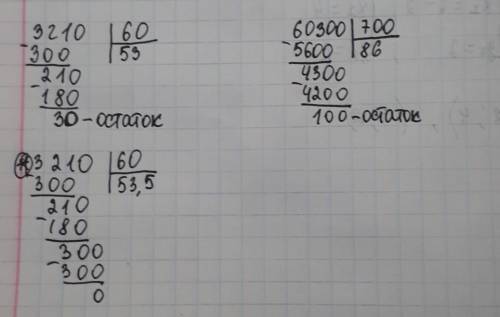 3210 | 60
- 300 | 53
210
- 180
30 - остаток
60300 | 700
- 5600 | 86
4300
- 4200
100 - остаток
3210 | 60
- 300 | 53,5
210
- 180
300
- 300
0